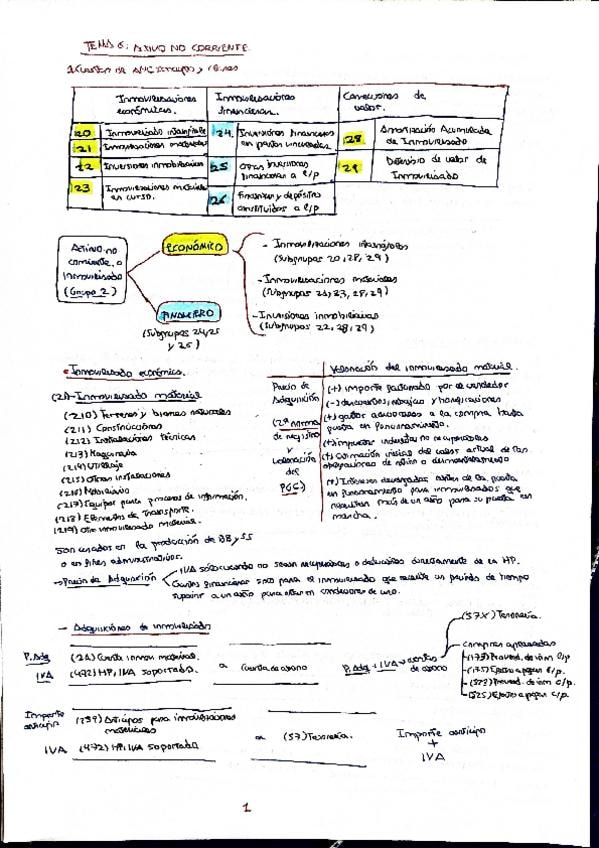 TEMA 6: ACTIVO NO CORRIENTE.
Inmovilizaciones económicas.
Inmovilizaciones financieras.
Correcciones de valor.
20 Inmovilizado intangible
21 Inmovilizaciones materiales
22 Inversiones inmobiliarias
23 Inmovilizaciones materiales en curso.
24 Inversiones financieras en partes vinculadas.
25 Otras inversiones financieras a l/p
26 Fianzas y depósitos constituidos a l/p
28 Amortización Acumulada de Inmovilizado
29 Deterioro de valor de Inmovilizado
Activo no corriente o inmovilizado (Grupo 2)
ECONÓMICO
- Inmovilizaciones intangibles
(Subgrupos 20, 28, 29)
- Inmovilizaciones materiales
(Subgrupos 21, 23, 28, 29)
- Inversiones inmobiliarias
(Subgrupos 22, 28, 29)
FINANCIERO
(Subgrupos 24, 25
y 26)
• Inmovilizado económico.
(21) Inmovilizado material
(210) Terrenos y bienes naturales
(211) Construcciones
(212) Instalaciones técnicas
(213) Maquinaria
(214) Utillaje
(215) Otras instalaciones
(216) Mobiliario
(217) Equipos para procesos de información.
(218) Elementos de transporte.
(219) Otro inmovilizado material.
Valoración del inmovilizado material.
Precio de Adquisición
(2ª norma de registro y valoración del PGC)
(+) importe facturado por el vendedor
(-) descuentos, rebajas y bonificaciones
(+) gastos asociados a la compra hasta
puesta en funcionamiento.
(+) impuestos indirectos no recuperables
(+) estimación inicial del valor actual de las
obligaciones de retiro o desmantelamiento
(+) Intereses devengados antes de la puesta
en funcionamiento para inmovilizados que
necesiten más de un año para su puesta en
marcha.
Son usados en la producción de BB y SS
o en fines administrativos.
→ Precio de Adquisición
IVA sólo cuando no sean recuperables o deducibles directamente de la HP.
Gastos financieros solo para el inmovilizado que necesite un periodo de tiempo
superior a un año para estar en condiciones de uso.
- Adquisiciones de inmovilizado
P. Adq (21) Cuenta inmov material.
IVA (472) HP, IVA soportado.
a Cuenta de abono
P. Adq + IVA → cuentas de abono
(57X) Tesorería.
Compras aplazadas
(173) Proveed. de inm l/p
(175) Efectos a pagar l/p.
(523) Proveed. de inm c/p.
(525) Efectos a pagar c/p.
Importe anticipo (239) Anticipos para inmovilizaciones
materiales
IVA (472) HP, IVA soportado
a (57) Tesorería.
Importe anticipo
+
IVA
1